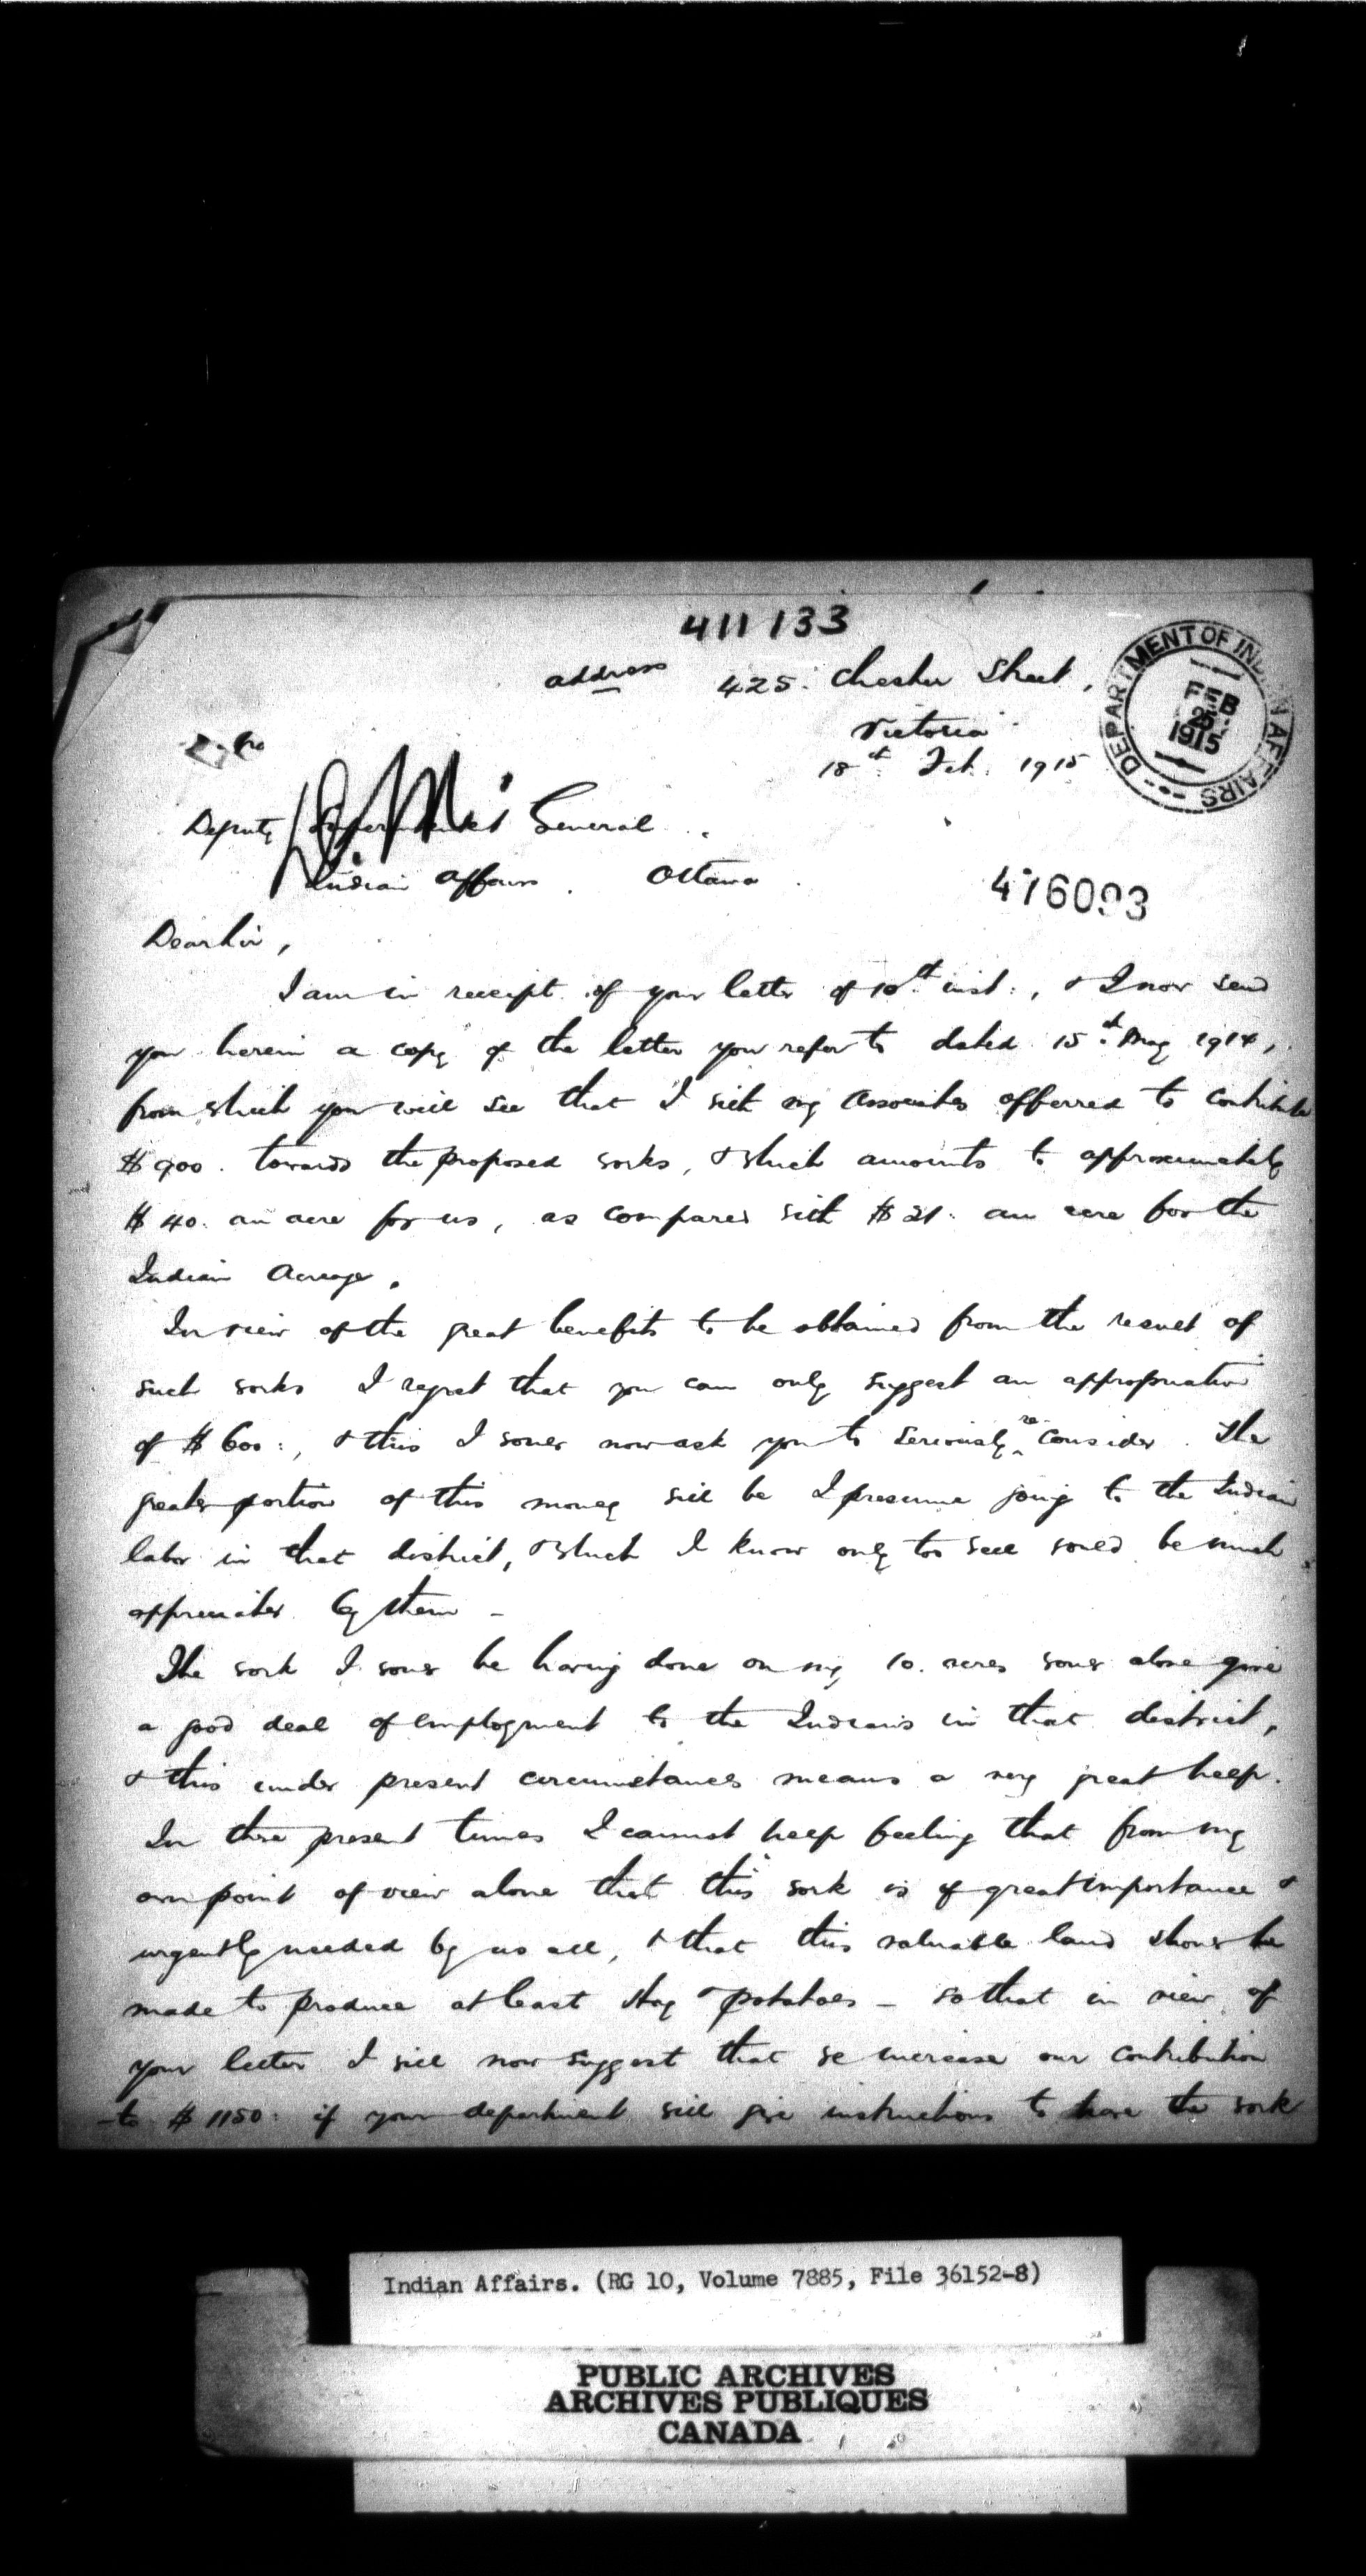 411133
address 425. Chester Street,
Victoria
18th Feb. 1915
DEPARTMENT OF INDIAN AFFAIRS
FEB
25
1915
Deputy Superintendent General.
Indian Affairs. Ottawa.
476093
Dear Sir,
I am in receipt of your letter of 10th inst:, & I now send
you herein a copy of the letter you refer to dated 15th May 1914,
from which you will see that I with my associates offerred to contribute
$900. towards the proposed works, & which amounts to approximately
$40. an acre for us, as compared with $21. an acre for the
Indian Acreage.
In view of the great benefits to be obtained from the result of
such works I regret that you can only suggest an appropriation
of $600:, & this I would now ask you to seriously re-consider. The
greater portion of this money will be I presume going to the Indian
labor in that district, & which I know only too well would be much
appreciated by them -
The work I would be having done on my 10. acres would alone give
a good deal of employment to the Indians in that district,
& this under present circumstances means a very great help.
In these present times I cannot help feeling that from my
own point of view alone that this work is of great importance &
urgently needed by us all, & that this valuable land should be
made to produce at least Hay & potatoes - so that in view of
your letter I will now suggest that we increase our contribution
to $1150: if your department will give instructions to have the work
Indian Affairs. (RG 10, Volume 7885, File 36152-8)
PUBLIC ARCHIVES
ARCHIVES PUBLIQUES
CANADA